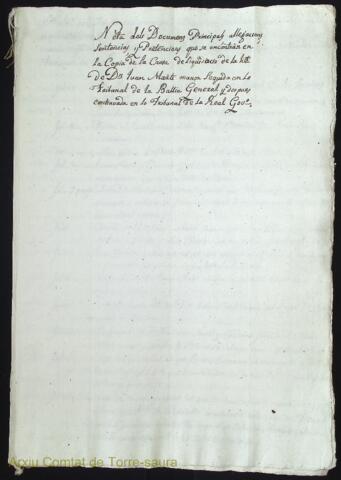 Nota dels Documens Principals, allegacions
Sentencias, y Pretencions que se encontran en
la Copia de la Causa de liquidació de la
de Dn Juan Martí seguida en lo
Tribunal de la Batlia General y despues
continuada en lo Tribunal de la Real Govn.
Arxiu Comtat de Torre-saura